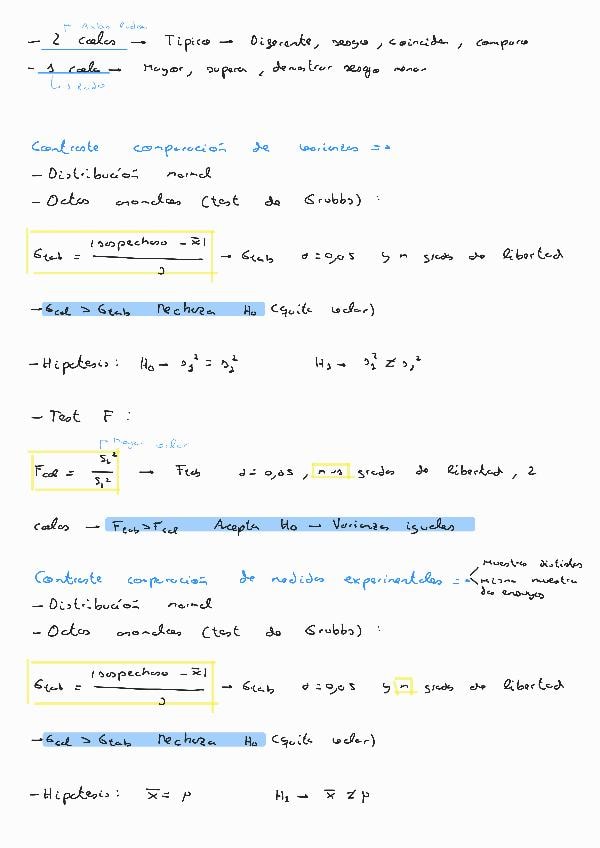 ↱ Ambos lados
- 2 colas → Típico → Diferente, sesgo, coinciden, compara
- 1 cola → Mayor, supera, demostrar sesgo menor
↳ 1 lado
Contraste comparación de varianzas =>
- Distribución normal
- Datos anómalos (test de Grubbs) :
Gtab = |sospechoso - x̄| / s → Gtab α = 0,05 y n grados de libertad
→ Gcal > Gtab Rechaza H₀ (quita valor)
- Hipótesis: H₀ → s₁² = s₂² H₁ → s₁² ≠ s₂²
- Test F :
↱ Mayor valor
Fcal = s₁² / s₂² → Ftab α = 0,05, n-1 grados de libertad, 2
colas → Ftab > Fcal Acepta H₀ → Varianzas iguales
Contraste comparación de medidas experimentales => Muestras distintas
misma muestra
dos ensayos
- Distribución normal
- Datos anómalos (test de Grubbs) :
Gtab = |sospechoso - x̄| / s → Gtab α = 0,05 y n grados de libertad
→ Gcal > Gtab Rechaza H₀ (quita valor)
- Hipótesis: x̄ = μ H₁ → x̄ ≠ μ